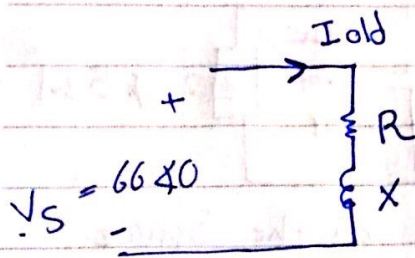 I old
+
R
Vs = 66∠0
X
-